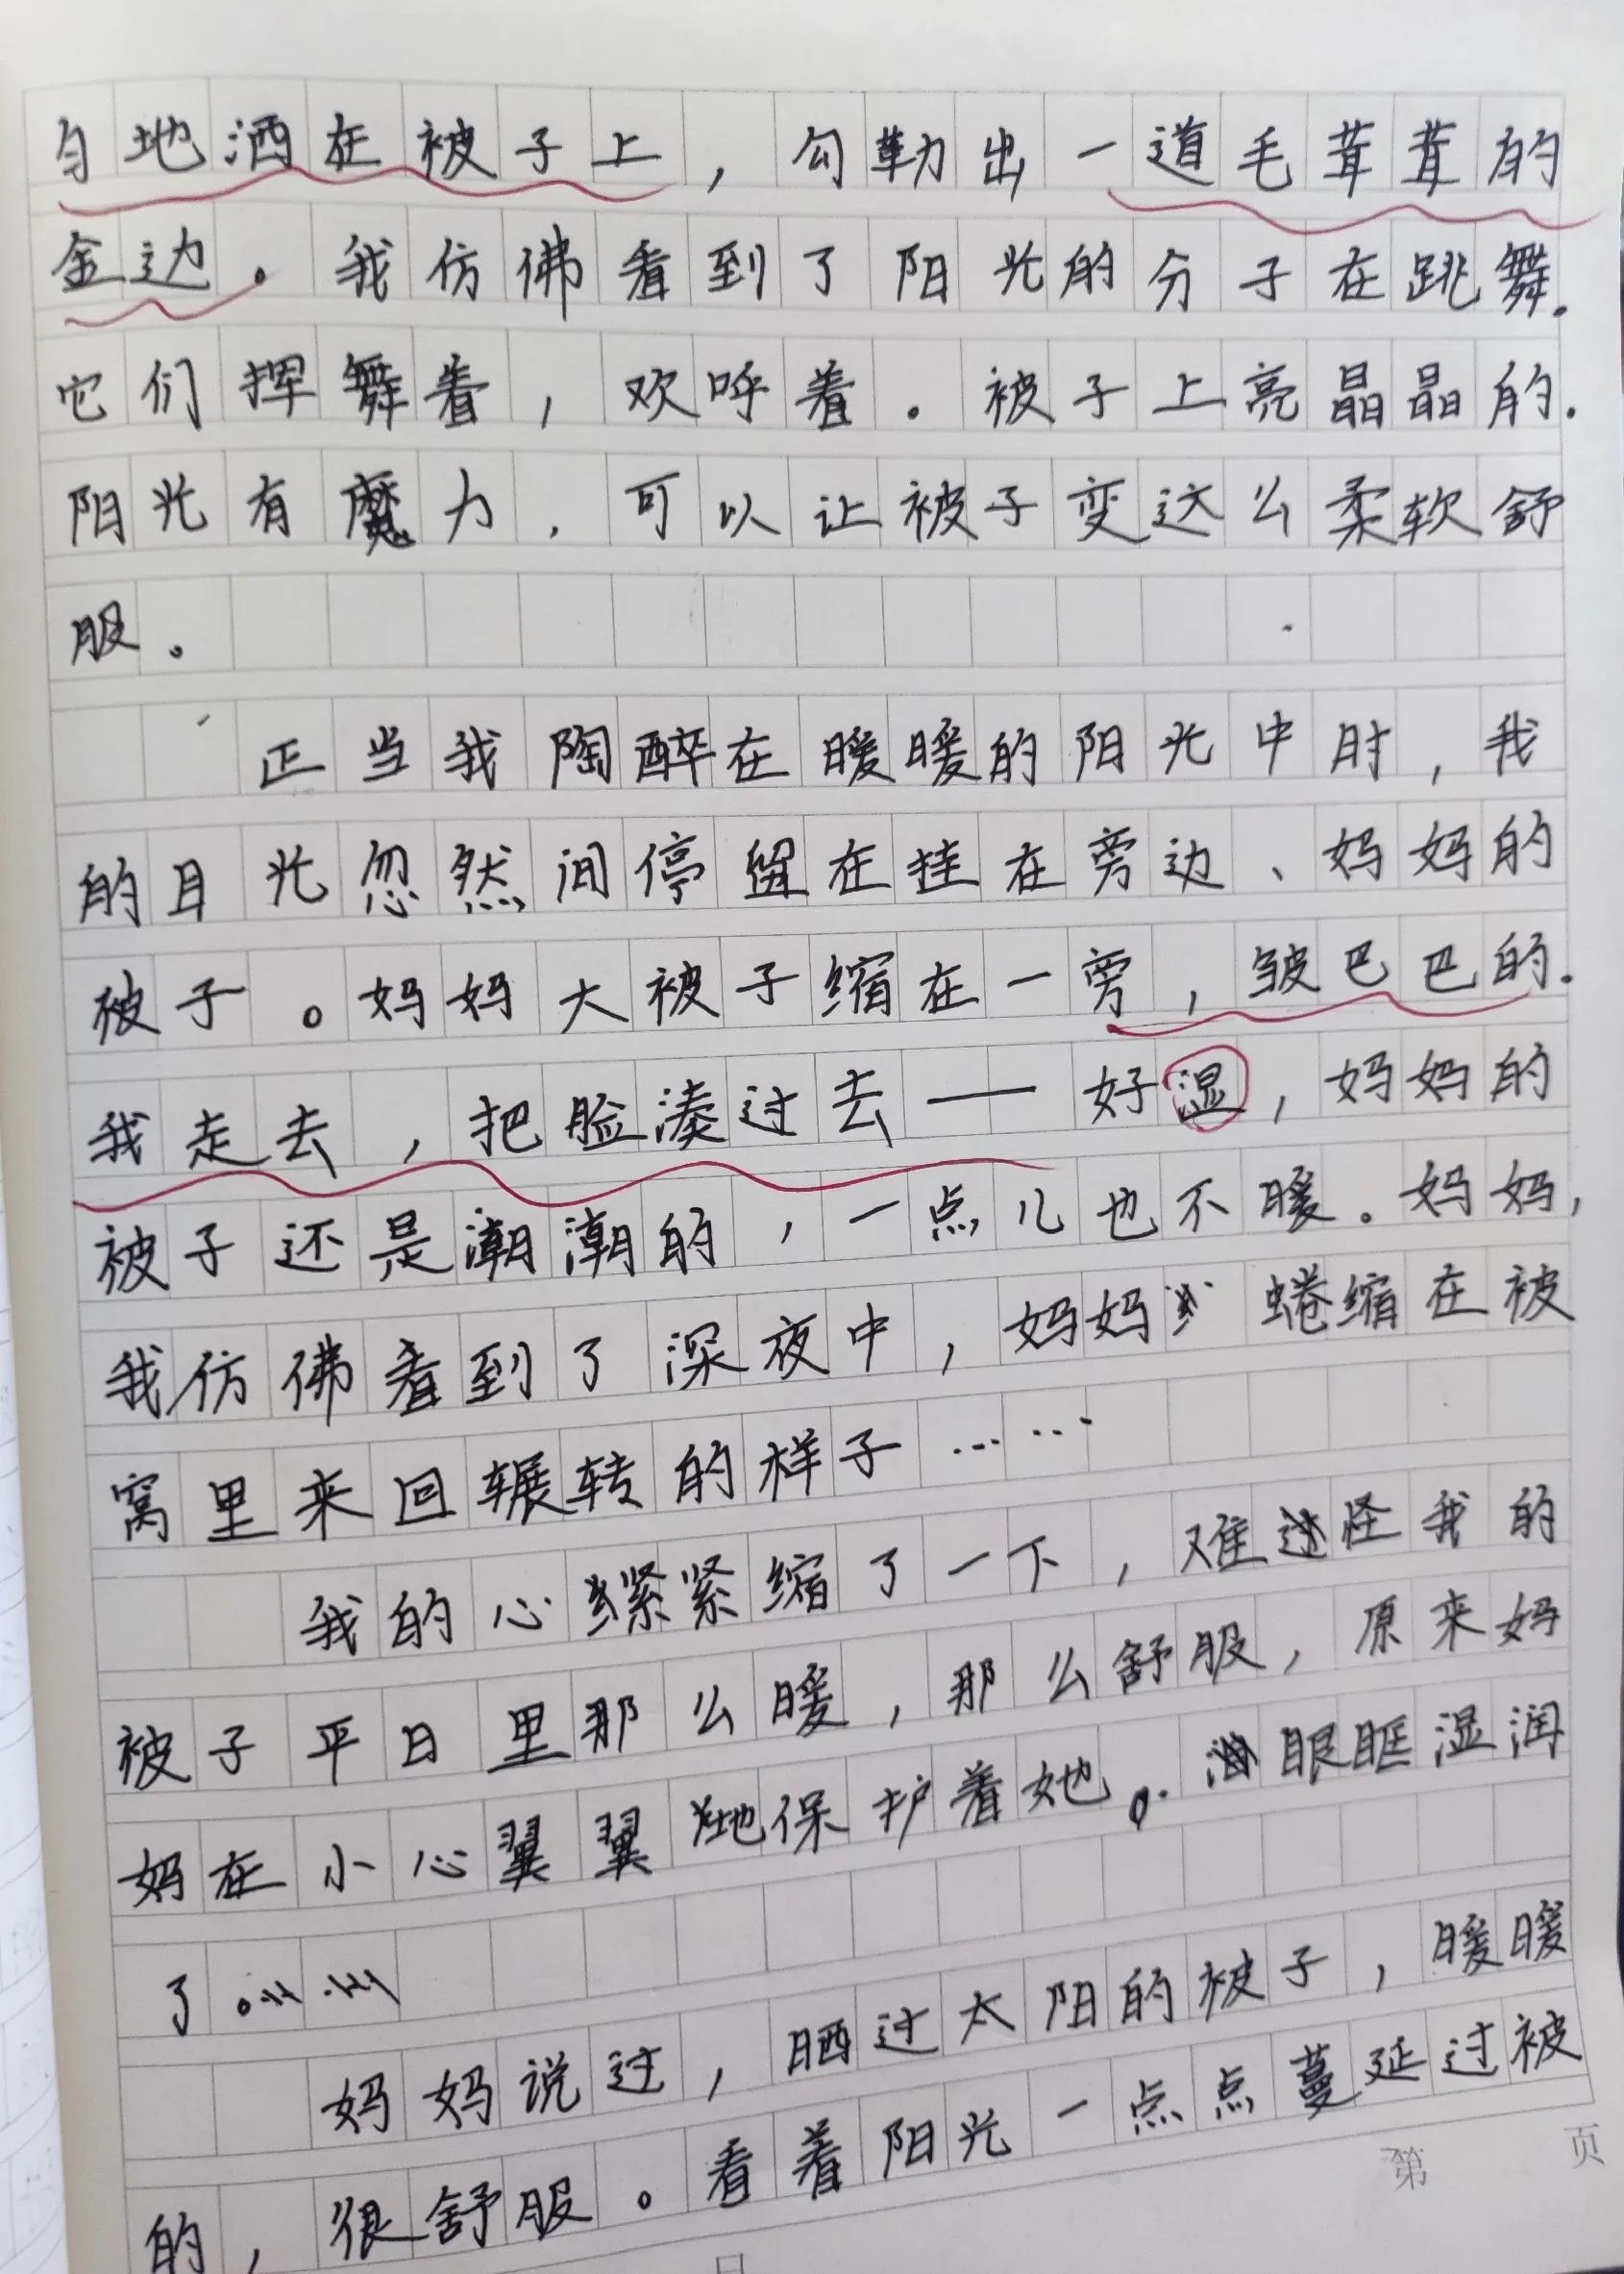 匀地洒在被子上，勾勒出一道毛茸茸的
金边。我仿佛看到了阳光的分子在跳舞.
它们挥舞着，欢呼着。被子上亮晶晶的.
阳光有魔力，可以让被子变这么柔软舒
服。
正当我陶醉在暖暖的阳光中时，我
的目光忽然间停留在挂在旁边、妈妈的
被子。妈妈大被子缩在一旁，皱巴巴的.
我走去，把脸凑过去——好湿，妈妈的
被子还是潮潮的，一点儿也不暖。妈妈，
我仿佛看到了深夜中，妈妈蜷缩在被
窝里来回辗转的样子……
我的心紧紧缩了一下，难怪我的
被子平日里那么暖，那么舒服，原来妈
妈在小心翼翼地保护着她。眼眶湿润
了。
妈妈说过，晒过太阳的被子，暖暖
的，很舒服。看着阳光一点点蔓延过被
第 页
日